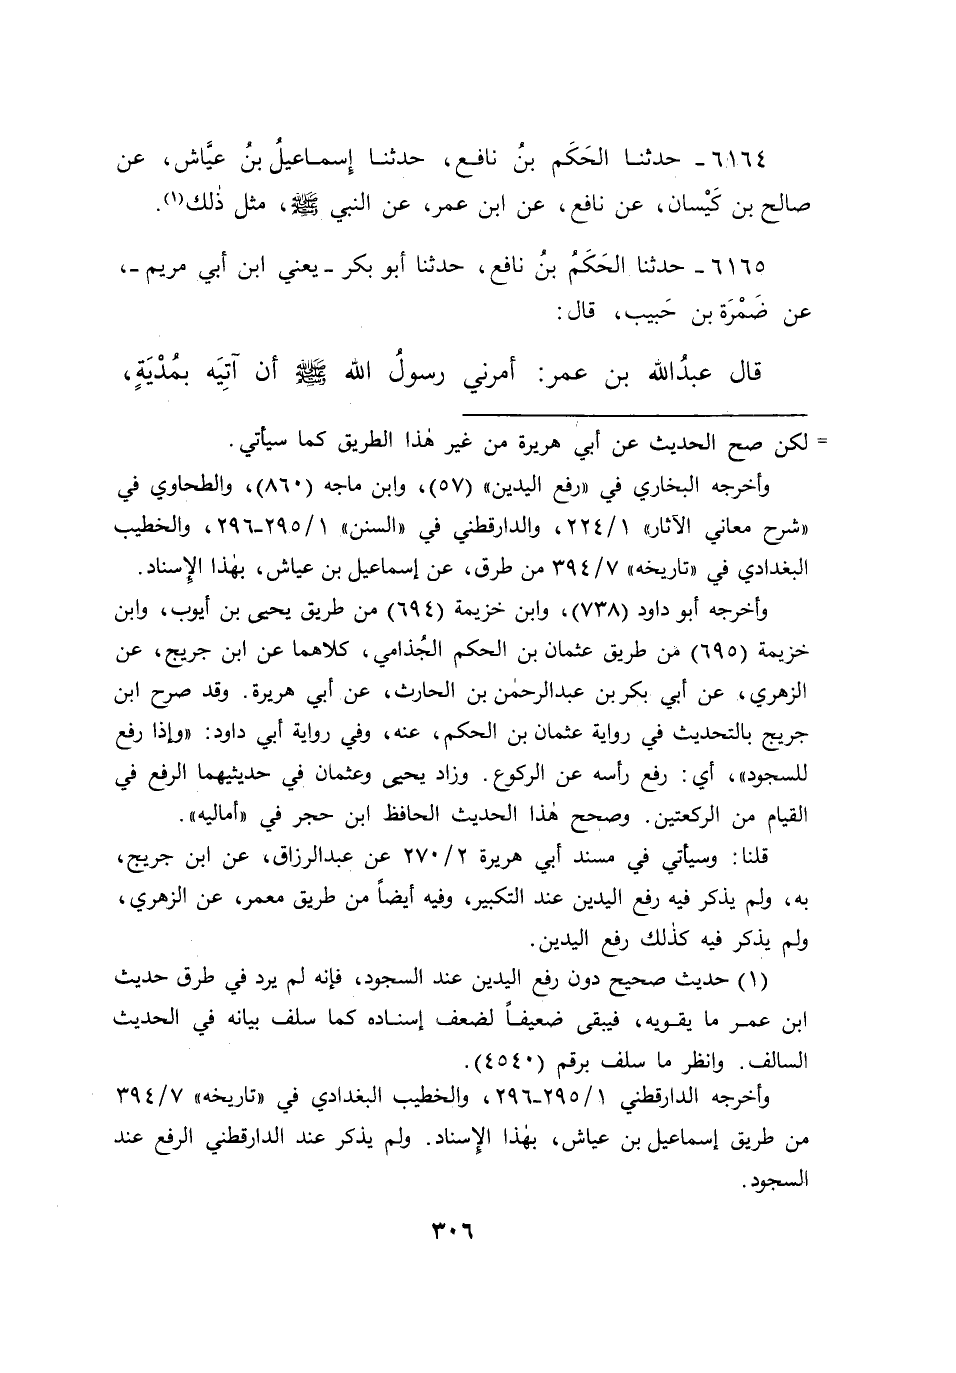 ٦١٦٤ـ حدثنـا الحَكَم بنُ نافـع، حدثنـا إِسمـاعيلُ بنُ عيَّاش، عن
صالح بن كَيْسان، عن نافع، عن ابن عمر، عن النبي ﷺ، مثل ذٰلك(١).
٦١٦٥ـ حدثنا الحَكَمُ بنُ نافع، حدثنا أبو بكر ـ يعني ابن أبي مريم ـ،
عن ضَمْرَة بن حَبيب، قال:
قال عبدُالله بن عمر: أمرني رسولُ الله ﷺ أن آتِيَه بمُدْيَةٍ،
= لكن صح الحديث عن أبي هريرة من غير هٰذا الطريق كما سيأتي.
وأخرجه البخاري في «رفع اليدين» (٥٧)، وابن ماجه (٨٦٠)، والطحاوي في
«شرح معاني الآثار» ٢٢٤/١، والدارقطني في «السنن» ٢٩٥/١-٢٩٦، والخطيب
البغدادي في «تاريخه» ٣٩٤/٧ من طرق، عن إسماعيل بن عياش، بهٰذا الإِسناد.
وأخرجه أبو داود (٧٣٨)، وابن خزيمة (٦٩٤) من طريق يحيى بن أيوب، وابن
خزيمة (٦٩٥) من طريق عثمان بن الحكم الجُذامي، كلاهما عن ابن جريج، عن
الزهري، عن أبي بكر بن عبدالرحمٰن بن الحارث، عن أبي هريرة. وقد صرح ابن
جريج بالتحديث في رواية عثمان بن الحكم، عنه، وفي رواية أبي داود: «وإذا رفع
للسجود»، أي: رفع رأسه عن الركوع. وزاد يحيى وعثمان في حديثيهما الرفع في
القيام من الركعتين. وصحح هٰذا الحديث الحافظ ابن حجر في «أماليه».
قلنا: وسيأتي في مسند أبي هريرة ٢٧٠/٢ عن عبدالرزاق، عن ابن جريج،
به، ولم يذكر فيه رفع اليدين عند التكبير، وفيه أيضاً من طريق معمر، عن الزهري،
ولم يذكر فيه كذٰلك رفع اليدين.
(١) حديث صحيح دون رفع اليدين عند السجود، فإنه لم يرد في طرق حديث
ابن عمـر ما يقـويه، فيبقى ضعيفـاً لضعف إسنـاده كما سلف بيانه في الحديث
السالف. وانظر ما سلف برقم (٤٥٤٠).
وأخرجه الدارقطني ٢٩٥/١-٢٩٦، والخطيب البغدادي في «تاريخه» ٣٩٤/٧
من طريق إسماعيل بن عياش، بهٰذا الإِسناد. ولم يذكر عند الدارقطني الرفع عند
السجود.
٣٠٦